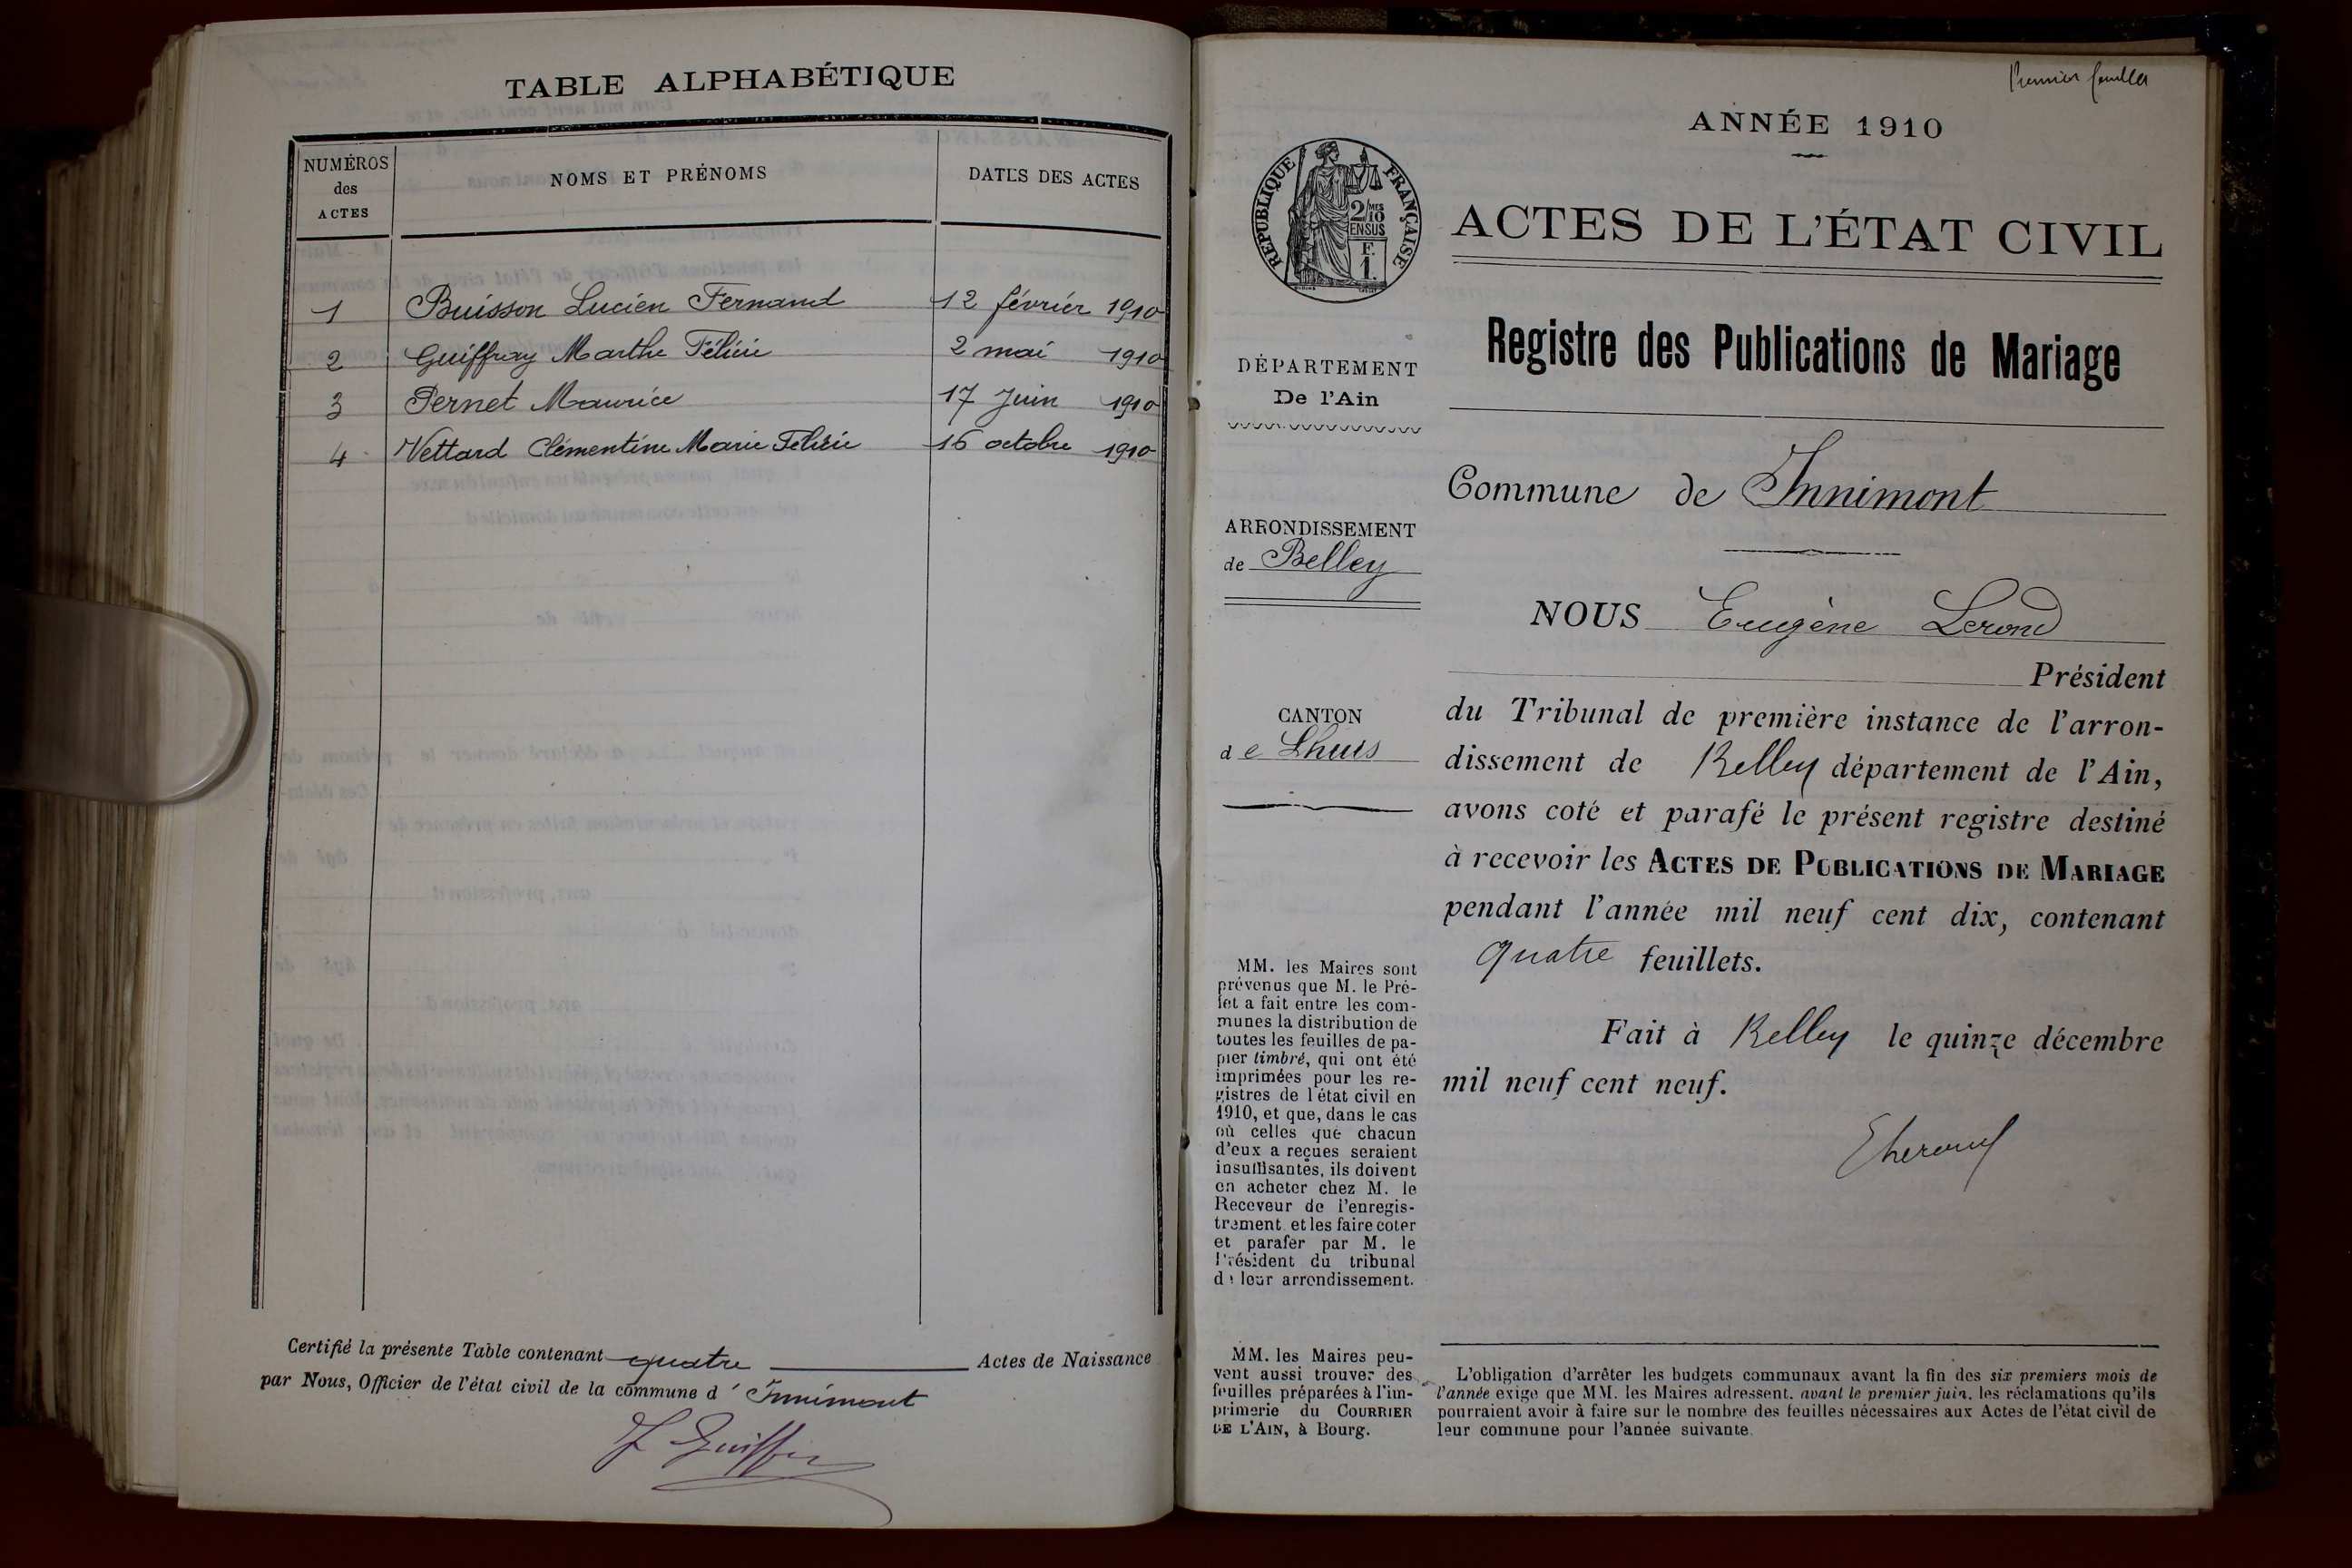 TABLE ALPHABÉTIQUE
NUMÉROS
des
ACTES
NOMS ET PRÉNOMS
DATES DES ACTES
1 Buisson Lucien Fernand 12 février 1910
2 Guiffray Marthe Félicie 2 mai 1910
3 Pernet Maurice 17 Juin 1910
4 Vettard Clémentine Marie Félicie 16 octobre 1910
Certifié la présente Table contenant quatre Actes de Naissance
par Nous, Officier de l'état civil de la commune d'Innimont
Premier feuillet
ANNÉE 1910
RÉPUBLIQUE FRANÇAISE
2/MES 10
EN SUS
F.
1.
ACTES DE L'ÉTAT CIVIL
Registre des Publications de Mariage
DÉPARTEMENT
De l'Ain
ARRONDISSEMENT
de Belley
CANTON
de Lhuis
MM. les Maires sont
prévenus que M. le Pré-
fet a fait entre les com-
munes la distribution de
toutes les feuilles de pa-
pier timbré, qui ont été
imprimées pour les re-
gistres de l'état civil en
1910, et que, dans le cas
où celles que chacun
d'eux a reçues seraient
insuffisantes, ils doivent
en acheter chez M. le
Receveur de l'enregis-
trement et les faire coter
et parafer par M. le
Président du tribunal
de leur arrondissement.
MM. les Maires peu-
vent aussi trouver des
feuilles préparées à l'im-
primerie du COURRIER
DE L'AIN, à Bourg.
Commune de Innimont
NOUS Eugène Lerond
Président
du Tribunal de première instance de l'arron-
dissement de Belley département de l'Ain,
avons coté et parafé le présent registre destiné
à recevoir les ACTES DE PUBLICATIONS DE MARIAGE
pendant l'année mil neuf cent dix, contenant
quatre feuillets.
Fait à Belley le quinze décembre
mil neuf cent neuf.
L'obligation d'arrêter les budgets communaux avant la fin des six premiers mois de
l'année exige que MM. les Maires adressent, avant le premier juin, les réclamations qu'ils
pourraient avoir à faire sur le nombre des feuilles nécessaires aux Actes de l'état civil de
leur commune pour l'année suivante.